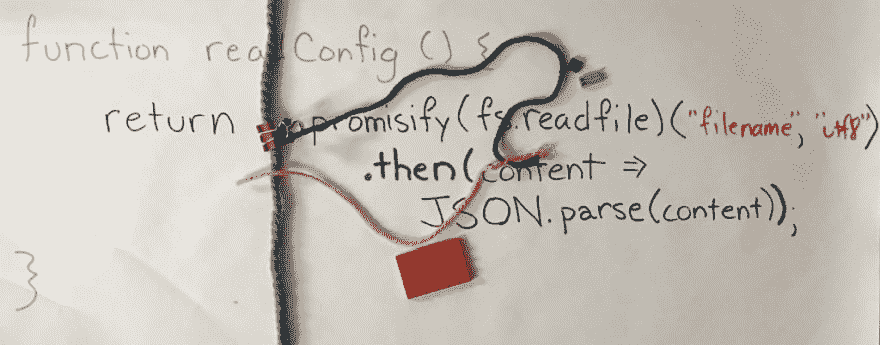 function readConfig () {
return promisify(fs.readfile)("filename", "utf8")
.then(content =>
JSON.parse(content));
}